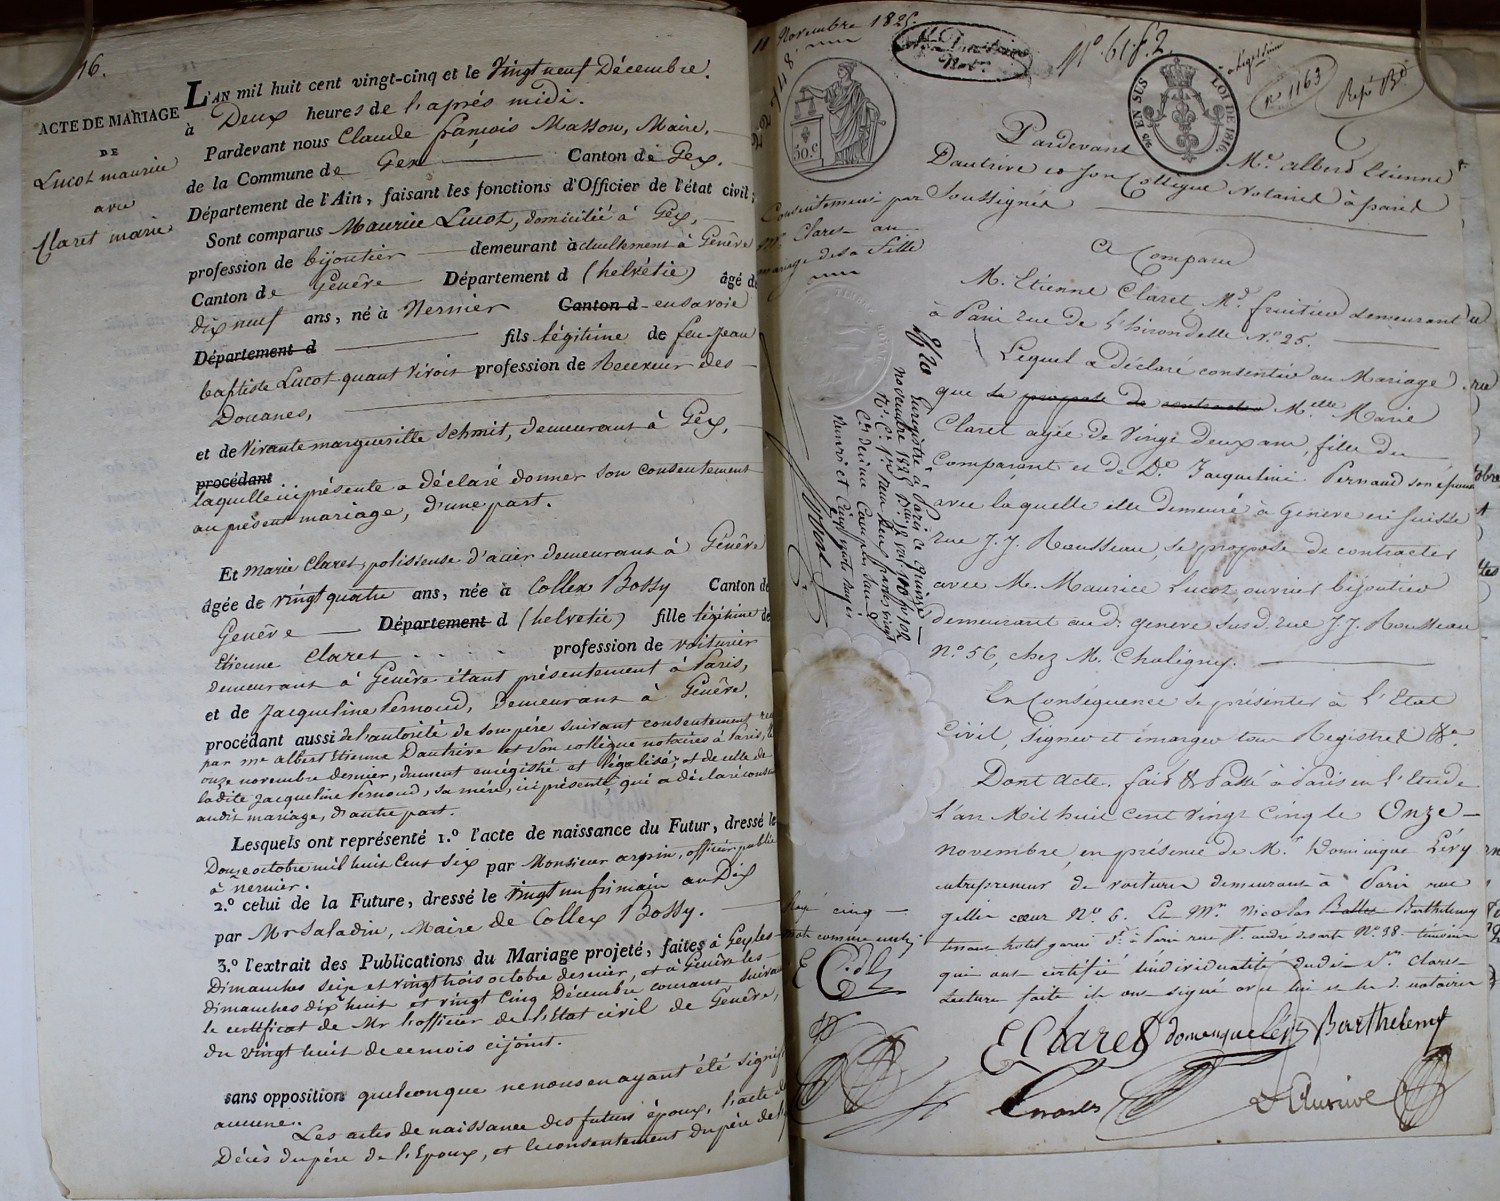 16.
ACTE DE MARIAGE
DE
Lucot maurice
avec
Claret marie
L'AN mil huit cent vingt-cinq et le Vingt neuf Décembre.
à Deux heures de l'après midi.
Pardevant nous Claude françois Masson, Maire,
de la Commune de Gex Canton de Gex.
Département de l'Ain, faisant les fonctions d'Officier de l'état civil;
Sont comparus Maurice Lucot, domicilié à Gex,
profession de bijoutier demeurant actuellement à Genêve
Canton de Genêve Département d (helvétie) âgé de
dix neuf ans, né à Nernier Canton d en savoie
Département d fils légitime de feu Jean
baptiste Lucot quant vivoit profession de Receveur des
Douanes,
et de Vivante margueritte Schmit, demeurant à Gex,
procédant
laquelle ici présente a déclaré donner son consentement
au présent mariage, d'une part.
Et marie Claret, polisseuse d'acier demeurant à Genêve
âgée de vingt quatre ans, née à Collex Bossy Canton de
Genêve Département d (helvetie) fille légitime de
Etienne Claret profession de voiturier
demeurant à Genêve étant présentement à Paris,
et de Jacqueline Pernoud, Demeurant à Genêve.
procédant aussi de l'autorité de son père suivant consentement reçu
par me Albert Etienne Dautrive et son collègue notaires à Paris, le
onze novembre dernier, dument enrégistré et légalisé, et de celle de
ladite Jacqueline Pernoud, sa mère, ici présente, qui a déclaré consen
audit mariage, d'autre part.
Lesquels ont représenté 1.º l'acte de naissance du Futur, dressé le
Douze octobre mil huit Cent Six par Monsieur arpin, officier public
à nernier.
2.º celui de la Future, dressé le vingt un frimaire an Dix
par Mr Saladin, Maire de Collex Bossy.
3.º l'extrait des Publications du Mariage projeté, faites à Gex les
Dimanches Seize et vingt trois octobre dernier, et à Genêve les
dimanches dix huit et vingt Cinq Décembre courant suivant
le certificat de Mr l'officier de l'Etat civil de Genêve,
du vingt huit de ce mois cijoint.
sans opposition quelconque ne nous en ayant été signif
aucune.
Les actes de naissance des futurs époux, l'acte de
Décès du père de l'Epoux, et le consentement du père de l'
11 Novembre 1825.
Nº 6182
Nº 1163
50.c
EN SUS
LOI DE 1816.
Consentement par
Mr Claret au
mariage de sa fille
Pardevant Me albert Etienne
Dautrive et son Collègue Notaires à paris
Soussignés
Est Comparu
M. Etienne Claret Md. fruitier demeurant
à Paris rue de l'hirondelle Nº 25.
Lequel a déclaré consentir au Mariage
que se propose de contracter Melle Marie
Claret agée de Vingt deux ans, fille du
Comparant et de De Jacqueline Pernaud son épouse
avec laquelle elle demeure à Geneve en Suisse
rue J. J. Rousseau, se propose de contracter
avec M. Maurice Lucot, ouvrier bijoutier
demeurant au d. geneve susd. rue J. J. Rousseau
Nº 56, chez M. Chaligny.
En Conséquence se présenter à l'Etat
Civil, Signer et émarger tous Registres &a
Dont acte. fait & Passé à Paris en l'Etude
l'an Mil huit cent vingt cinq le Onze
novembre, en présence de Mr Dominique Lévy
entrepreneur de voitures demeurant à Paris rue
gille cœur Nº 6. Et Mr Nicolas Barthelemy
tenant hotel garni dt à Paris rue St andré des arts Nº 38. témoins
qui ont certifié l'individualité dudit Sr Claret
Lecture faite ils ont signé avec lui et les d. notaires
Rayé cinq
mots comme nuls
Enregistré à Paris ce quinze
novembre 1825
E Claret dominque lévy Barthelemy
Dautrive